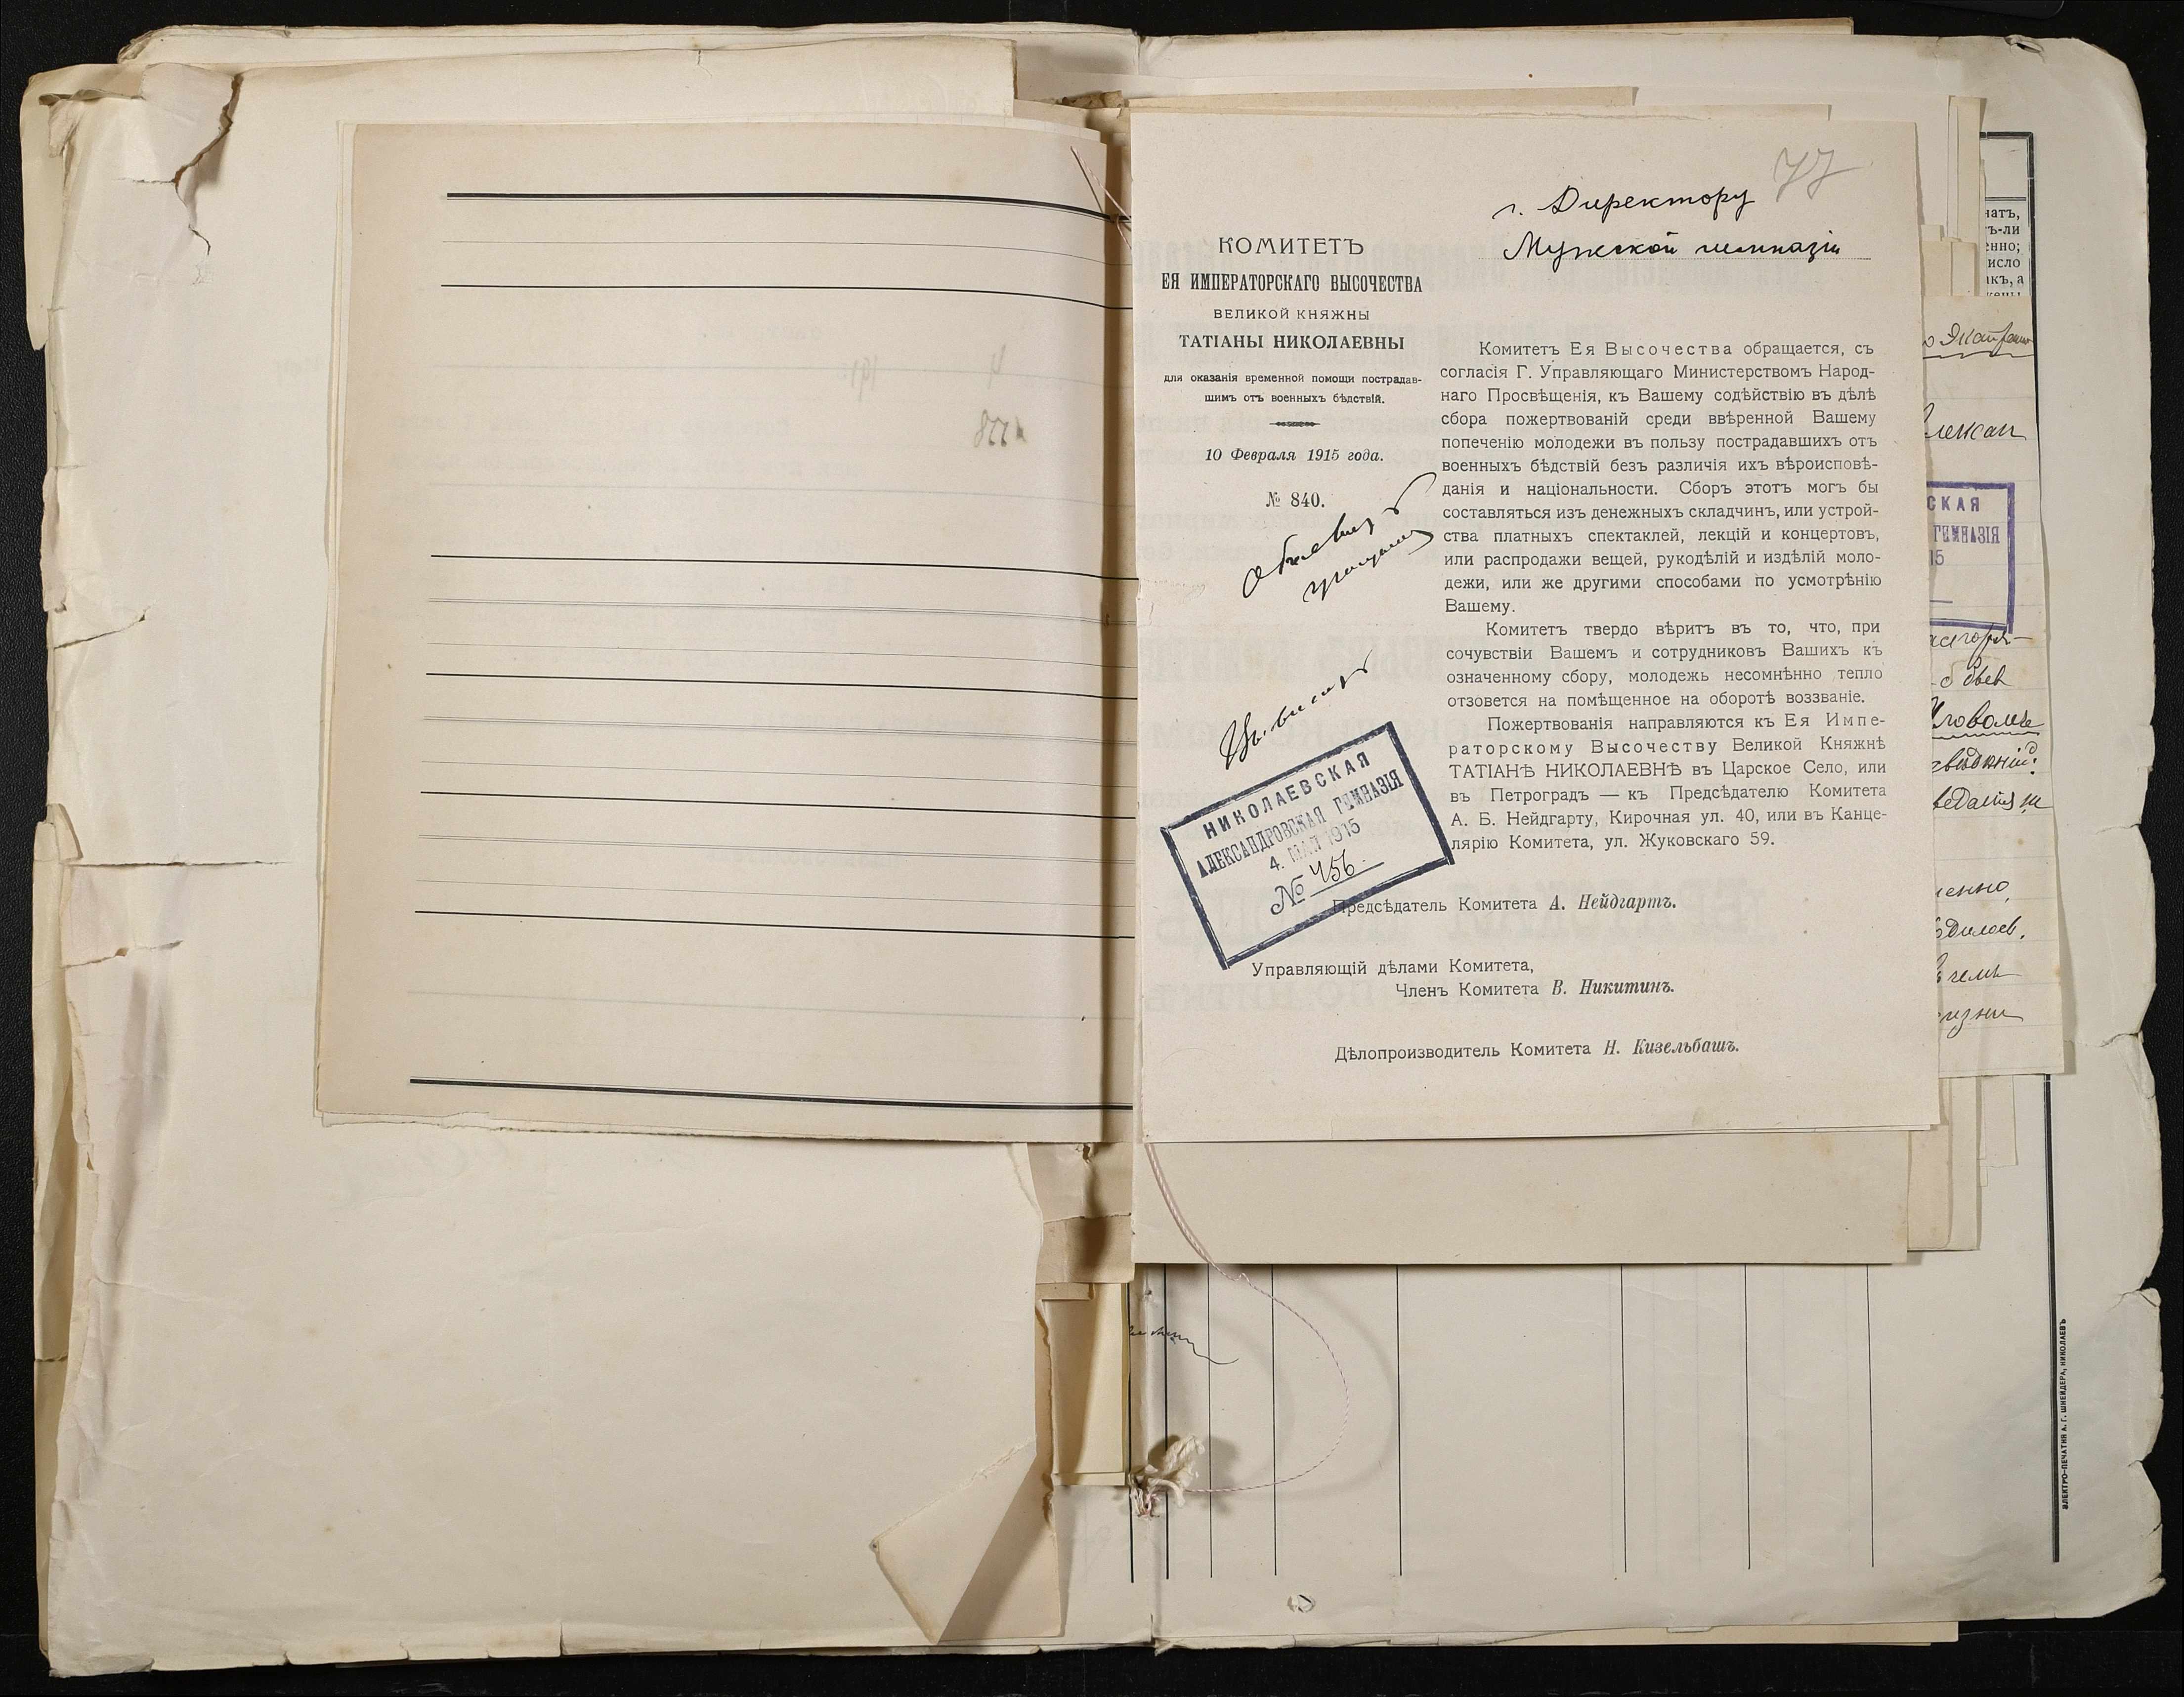 77
г. Директору
Мужской гимназіи
КОМИТЕТЪ
ЕЯ ИМПЕРАТОРСКАГО ВЫСОЧЕСТВА
ВЕЛИКОЙ КНЯЖНЫ
ТАТІАНЫ НИКОЛАЕВНЫ
для оказанія временной помощи пострадав-
шимъ отъ военныхъ бѣдствій.
10 Февраля 1915 года.
№ 840.
Комитетъ Ея Высочества обращается, съ
согласія Г. Управляющаго Министерствомъ Народ-
наго Просвѣщенія, къ Вашему содѣйствію въ дѣлѣ
сбора пожертвованій среди ввѣренной Вашему
попеченію молодежи въ пользу пострадавшихъ отъ
военныхъ бѣдствій безъ различія ихъ вѣроисповѣ-
данія и національности. Сборъ этотъ могъ бы
составляться изъ денежныхъ складчинъ, или устрой-
ства платныхъ спектаклей, лекцій и концертовъ,
или распродажи вещей, рукодѣлій и издѣлій моло-
дежи, или же другими способами по усмотрѣнію
Вашему.
Комитетъ твердо вѣритъ въ то, что, при
сочувствіи Вашемъ и сотрудниковъ Вашихъ къ
означенному сбору, молодежь несомнѣнно тепло
отзовется на помѣщенное на оборотѣ воззваніе.
Пожертвованія направляются къ Ея Импе-
раторскому Высочеству Великой Княжнѣ
ТАТІАНѢ НИКОЛАЕВНѢ въ Царское Село, или
въ Петроградъ — къ Предсѣдателю Комитета
А. Б. Нейдгарту, Кирочная ул. 40, или въ Канце-
лярію Комитета, ул. Жуковскаго 59.
НИКОЛАЕВСКАЯ
АЛЕКСАНДРОВСКАЯ ГИМНАЗІЯ
4. МАЯ 1915
№ 456.
Предсѣдатель Комитета А. Нейдгартъ.
Управляющій дѣлами Комитета,
Членъ Комитета В. Никитинъ.
Дѣлопроизводитель Комитета Н. Кизельбашъ.
СКАЯ
ГИМНАЗІЯ
15
ЭЛЕКТРО-ПЕЧАТНЯ А. Г. ШНЕЙДЕРА, НИКОЛАЕВЪ